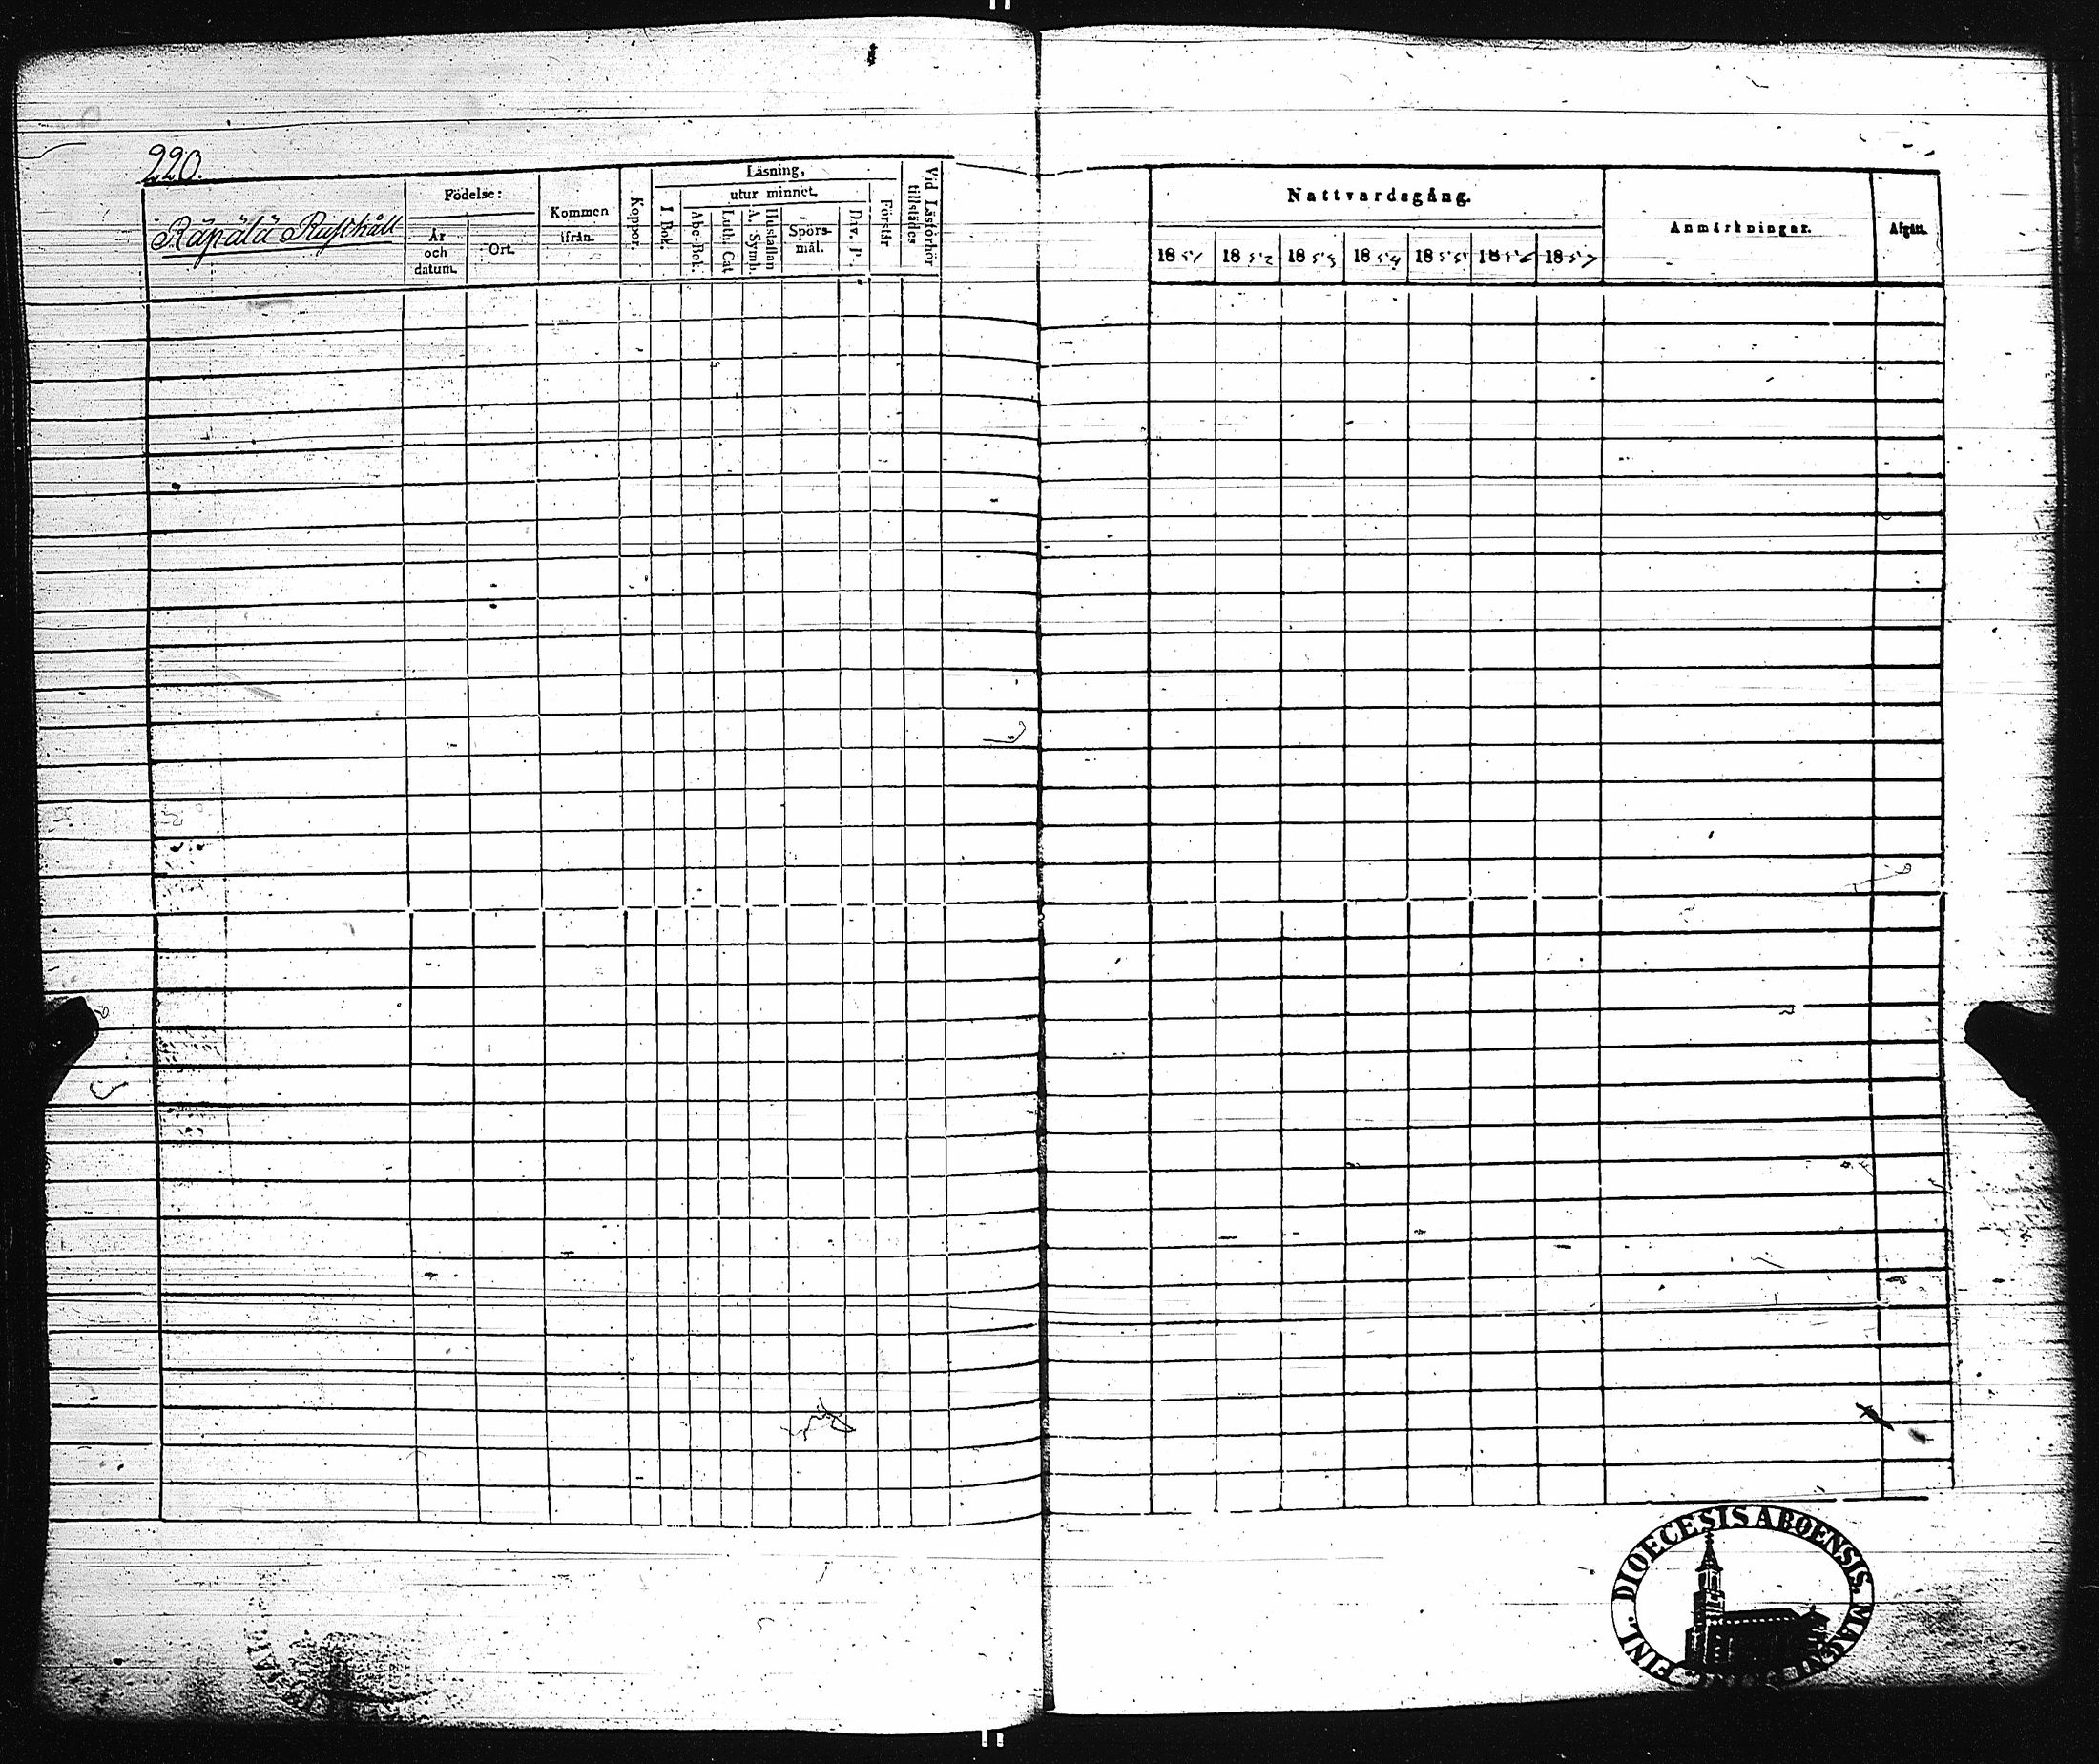 220.
Räpälä Rusthåll
Födelse:
År
och
datum.
Ort.
Kommen
ifrån.
Koppor.
Läsning,
utur minnet.
I. Bok.
Abc-Bok.
Luth. Cat.
Hustaflan
A. Symb.
Spörs-
mål.
Dav. P.
Förstår
Vid Läsförhör
tillstädes
Nattvardsgång.
1851 1852 1853 1854 1855 1856 1857
Anmärkningar.
Afgått.
FINL. DIOECESIS ABOENSIS. MAGNI